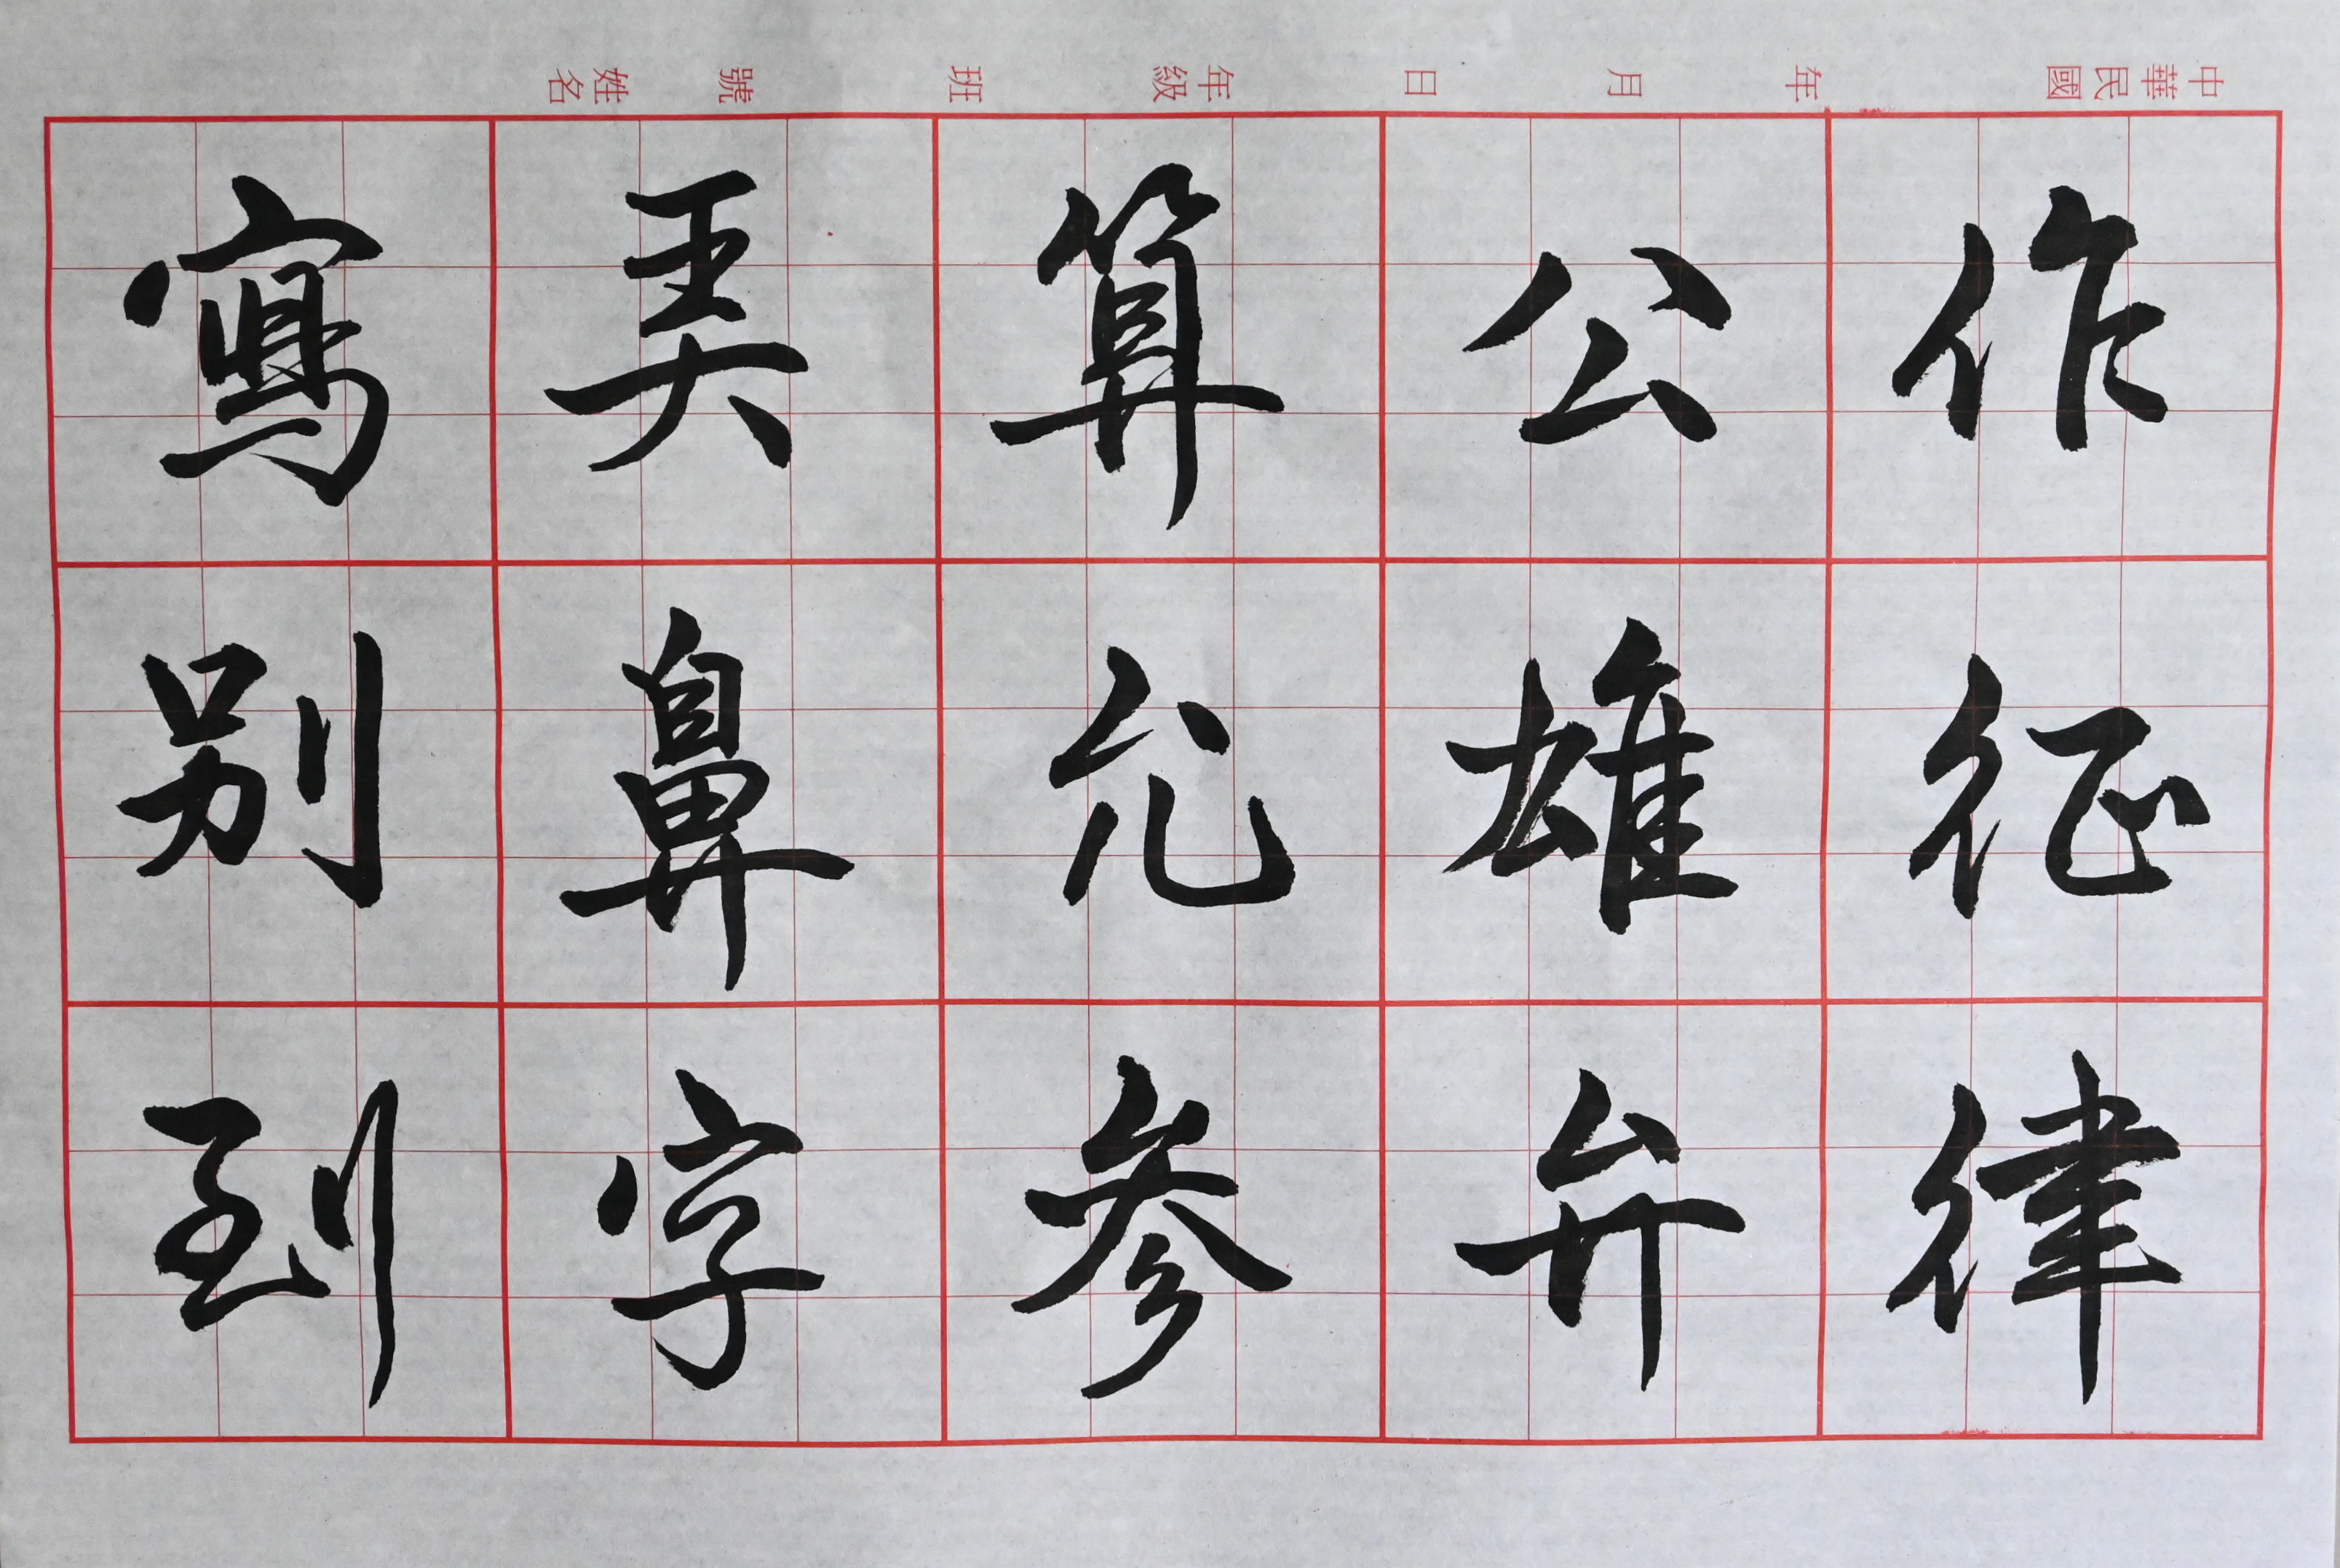 中華民國 年 月 日 年級 班 號 姓名
作征律
公雄弁
算允参
弄鼻字
寫別到